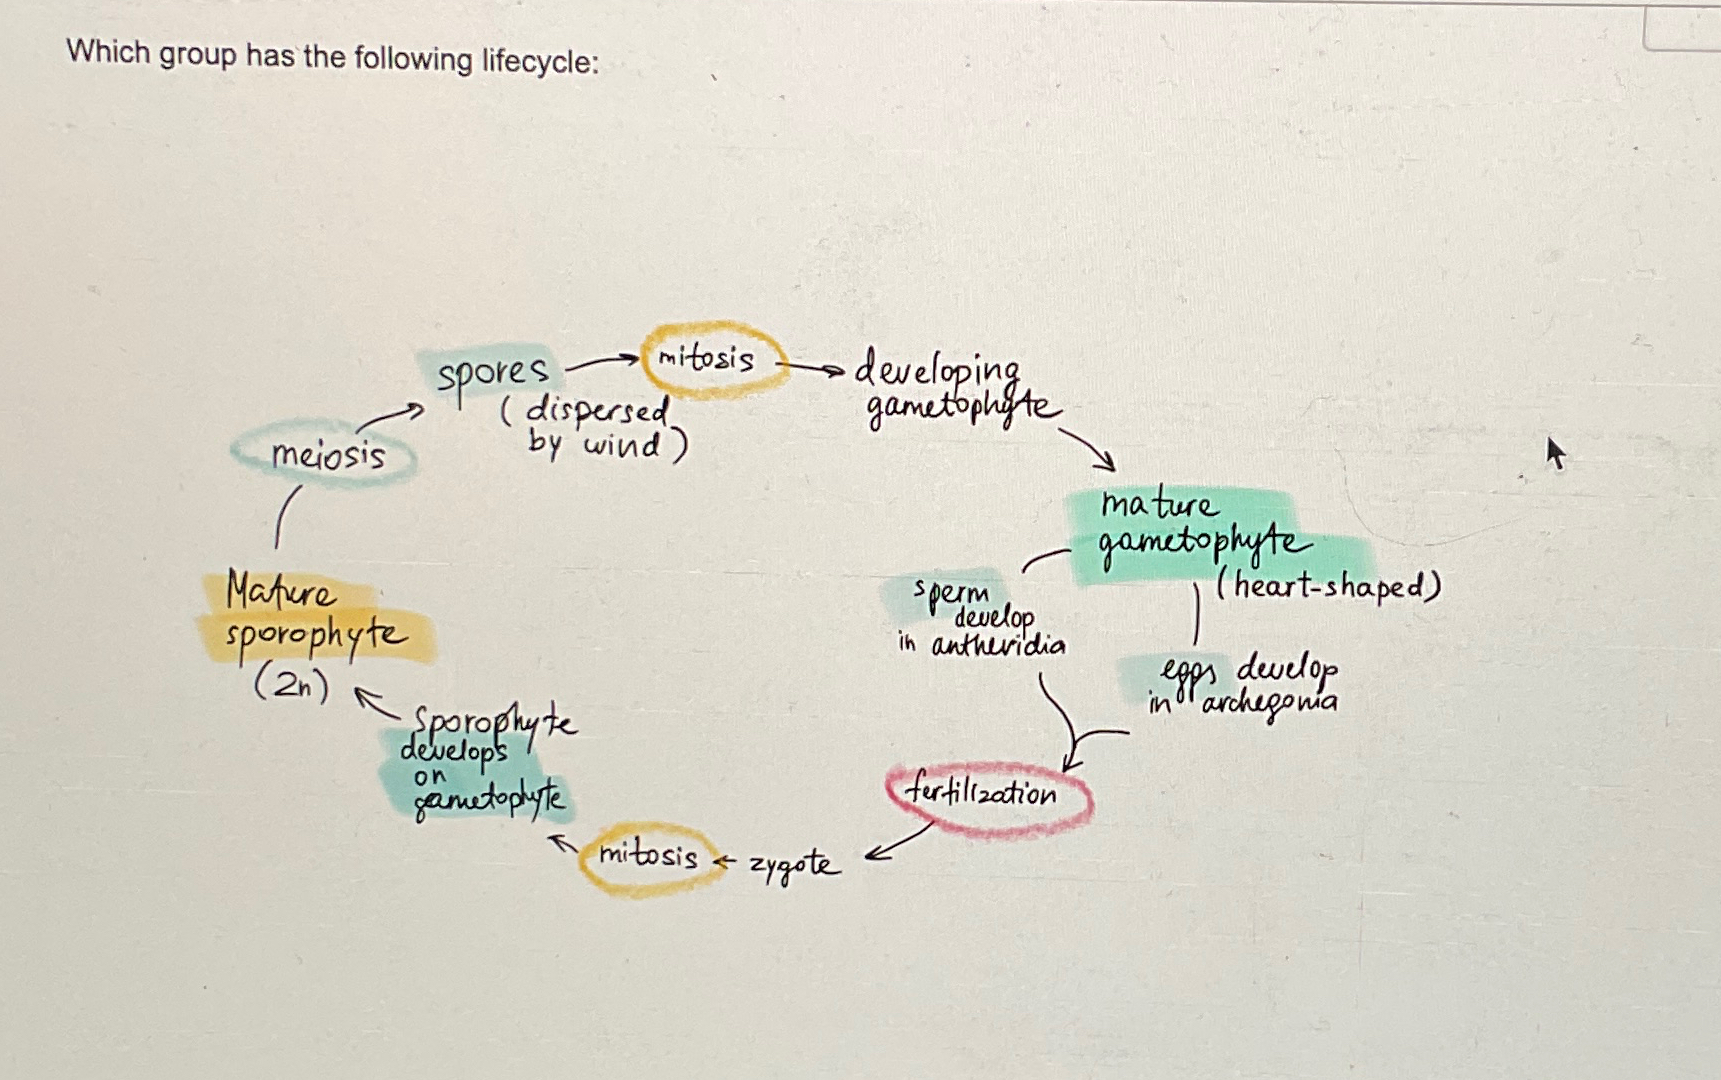 Which group has the following lifecycle:
spores
(dispersed
by wind)
mitosis
developing
gametophyte
meiosis
mature
gametophyte
(heart-shaped)
sperm
develop
in antheridia
eggs develop
in archegonia
Mature
sporophyte
(2n)
Sporophyte
develops
on
gametophyte
fertilization
mitosis
zygote